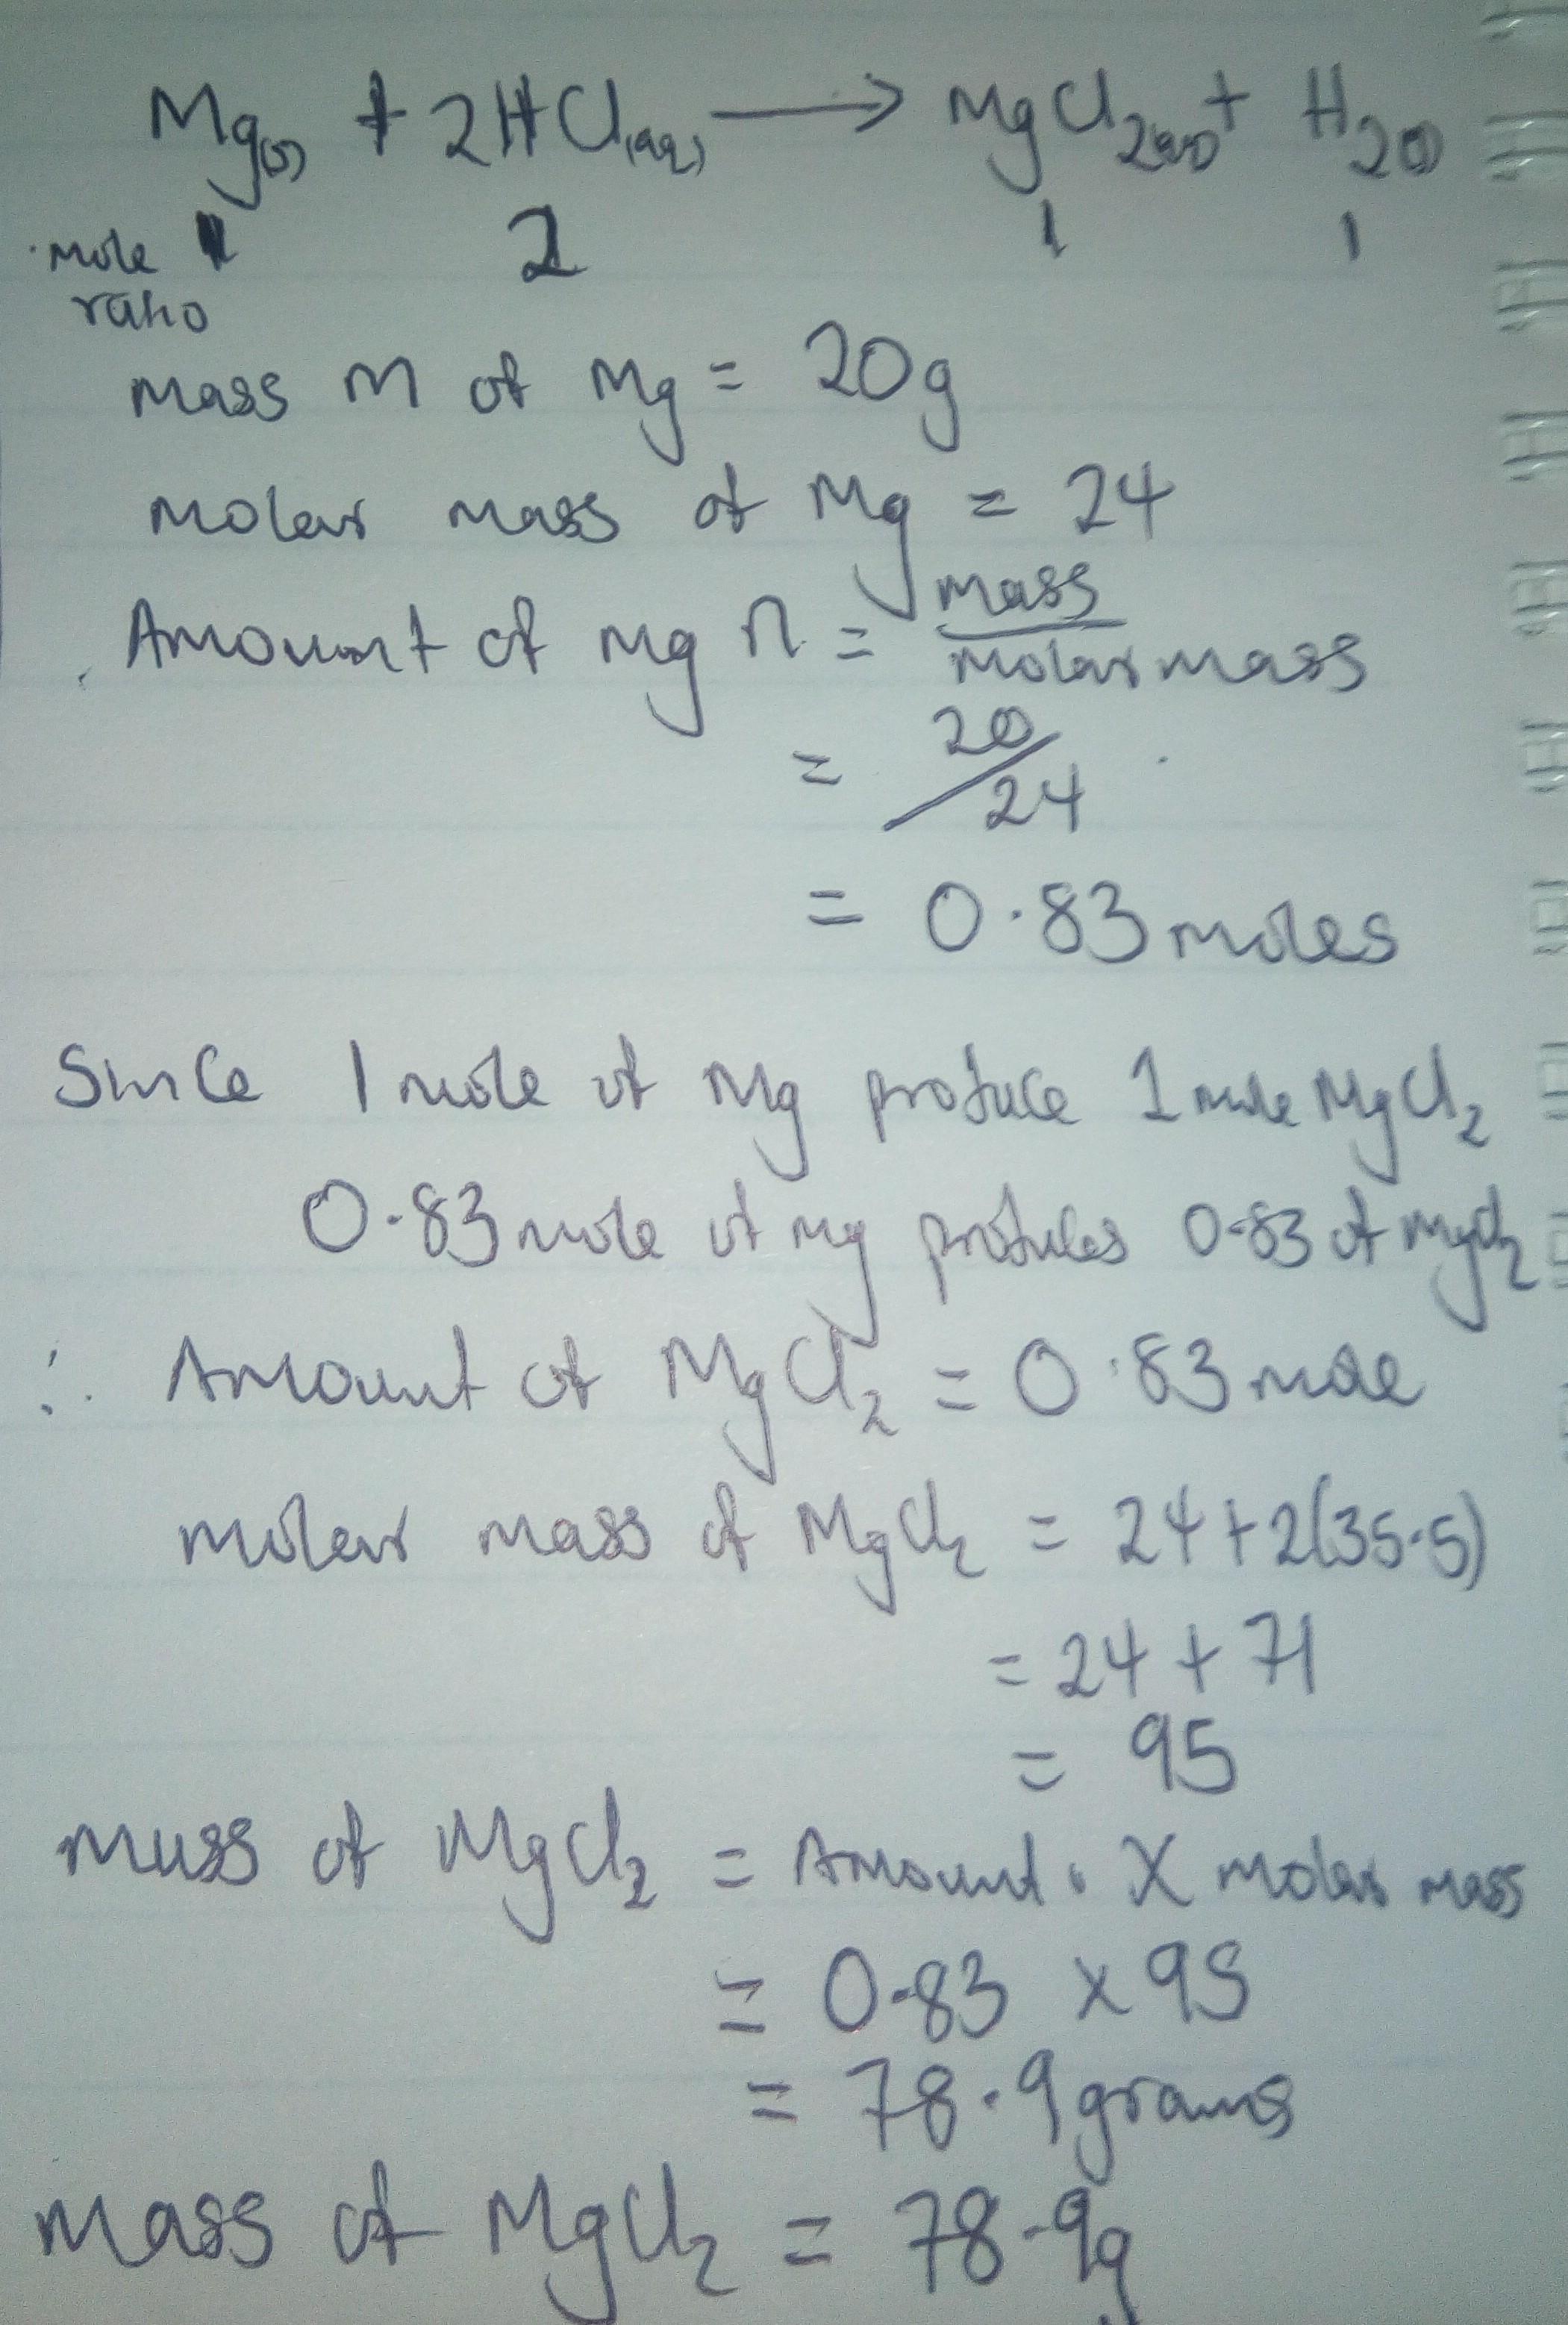 Mg(s) + 2HCl(aq) → MgCl2(aq) + H2(g)
mole 1 2 1 1
ratio
mass m of Mg = 20g
molar mass of Mg = 24
Amount of mg n = mass / molar mass
= 20/24
= 0.83 moles
Since 1 mole of Mg produce 1 mole MgCl2
0.83 mole of mg produces 0.83 of MgCl2
∴ Amount of MgCl2 = 0.83 mole
molar mass of MgCl2 = 24+2(35.5)
= 24 + 71
= 95
mass of MgCl2 = Amount × molar mass
= 0.83 × 95
= 78.9 grams
mass of MgCl2 = 78.9g